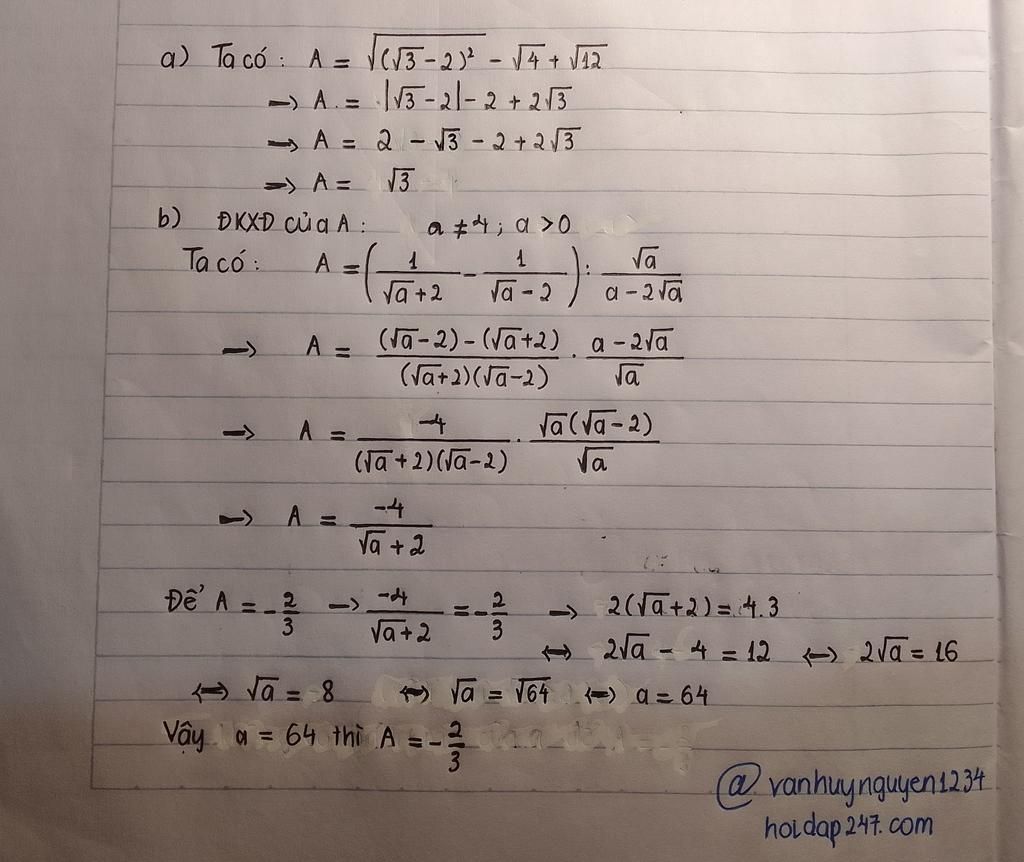 a) Ta có: A = √((√3 - 2)²) - √4 + √12
→ A = |√3 - 2| - 2 + 2√3
→ A = 2 - √3 - 2 + 2√3
→ A = √3
b) ĐKXĐ của A: a ≠ 4; a > 0
Ta có: A = (1/(√a + 2) - 1/(√a - 2)) : √a/(a - 2√a)
→ A = ((√a - 2) - (√a + 2))/((√a + 2)(√a - 2)) . (a - 2√a)/√a
→ A = -4/((√a + 2)(√a - 2)) . √a(√a - 2)/√a
→ A = -4/(√a + 2)
Để A = -2/3 → -4/(√a + 2) = -2/3 → 2(√a + 2) = 4.3
⇔ 2√a - 4 = 12 ⇔ 2√a = 16
⇔ √a = 8 ⇔ √a = √64 ⇔ a = 64
Vậy a = 64 thì A = -2/3
@vanhuynguyen1234
hoidap247.com